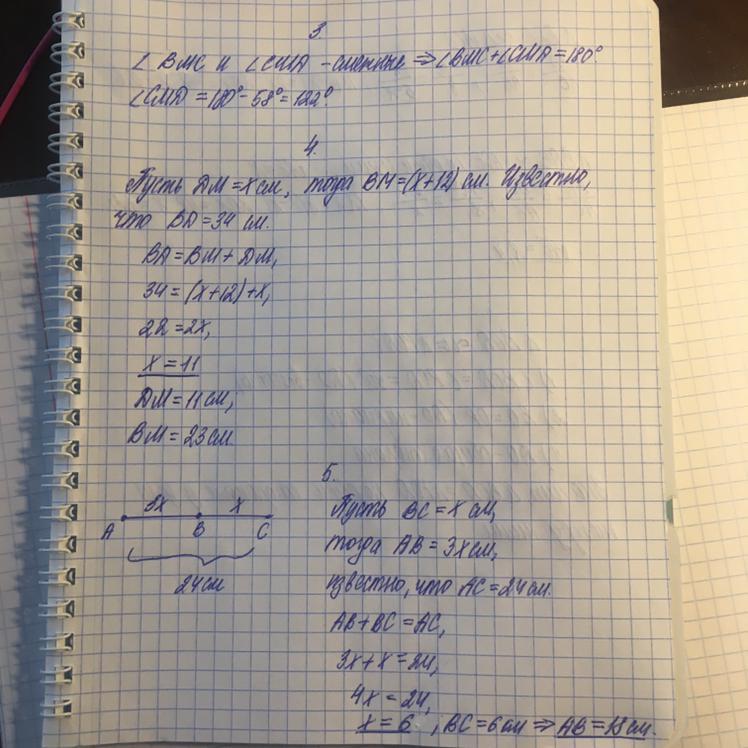 3
∠ BMC и ∠CMA - смежные ⇒ ∠BMC+∠CMA=180°
∠CMD = 180° - 58° = 122°.
4.
Пусть DM = x см, тогда BM = (x+12) см. Известно,
что BD = 34 см.
BD = BM + DM,
34 = (x+12)+x,
22 = 2x,
x = 11
DM = 11 см,
BM = 23 см
5.
3x x
A B C
24 см
Пусть BC = x см,
тогда AB = 3x см,
известно, что AC = 24 см.
AB + BC = AC,
3x + x = 24,
4x = 24,
x = 6 , BC = 6 см ⇒ AB = 18 см.